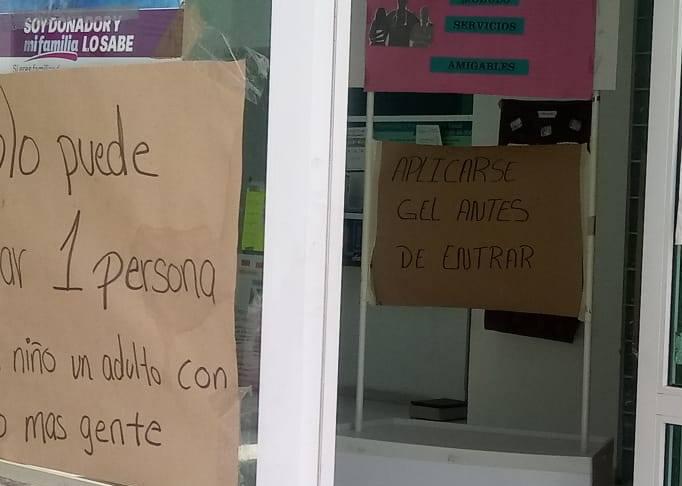 SOY DONADOR Y
mi familia LO SABE
puede
1 persona
niño un adulto con
mas gente
SERVICIOS
AMIGABLES
APLICARSE
GEL ANTES
DE ENTRAR